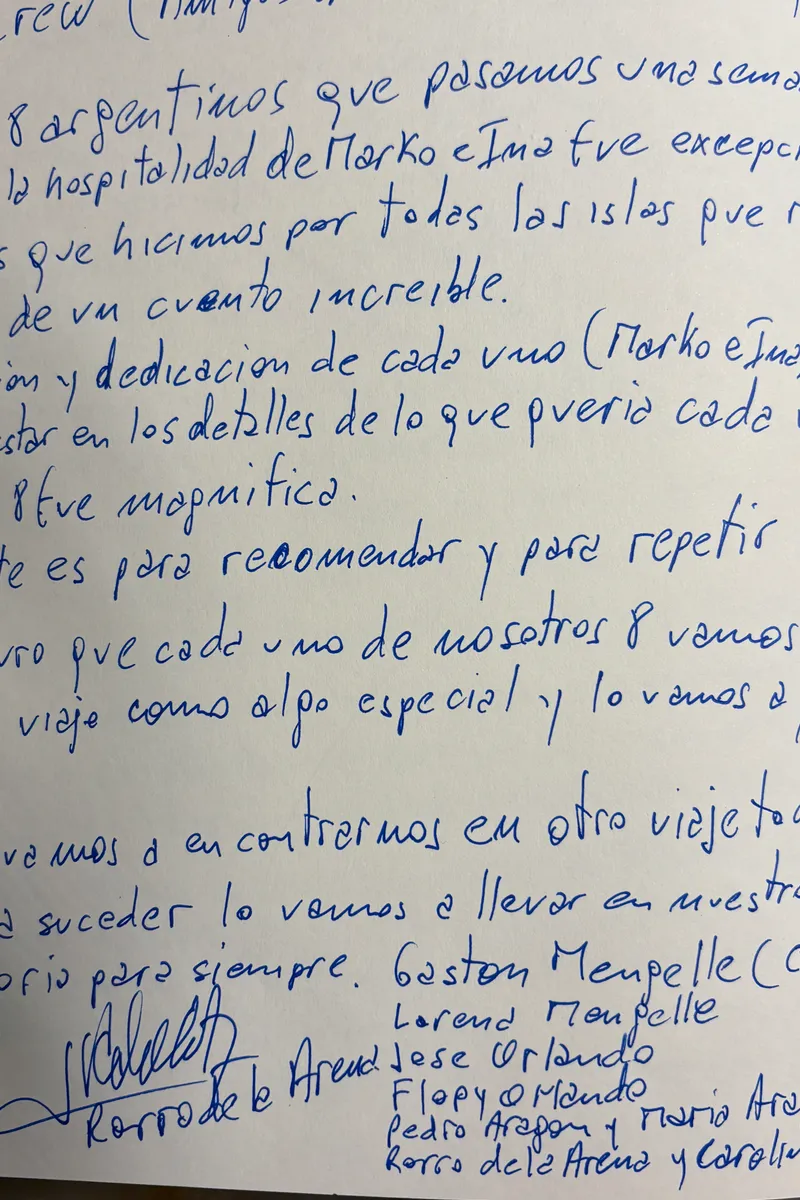 crew (Amigos
8 argentinos que pasamos una sema
la hospitalidad de Marko e Ina fue excepci
s que hicimos por todas las islas que r
de un cuento increible.
ion y dedicacion de cada uno (Marko e Ina,
star en los detalles de lo que queria cada u
8 fue magnifica.
te es para recomendar y para repetir
uro que cada uno de nosotros 8 vamos
viaje como algo especial y lo vamos a
vamos a encontrarnos en otro viaje to
a suceder lo vamos a llevar en nuestra
oria para siempre. Gaston Mengelle (C
Lorena Mengelle
Jose Orlando
Flopy Orlando
Pedro Aragon y Maria Ara
Rorro de la Arena y Carolin
Rorro de la Arena